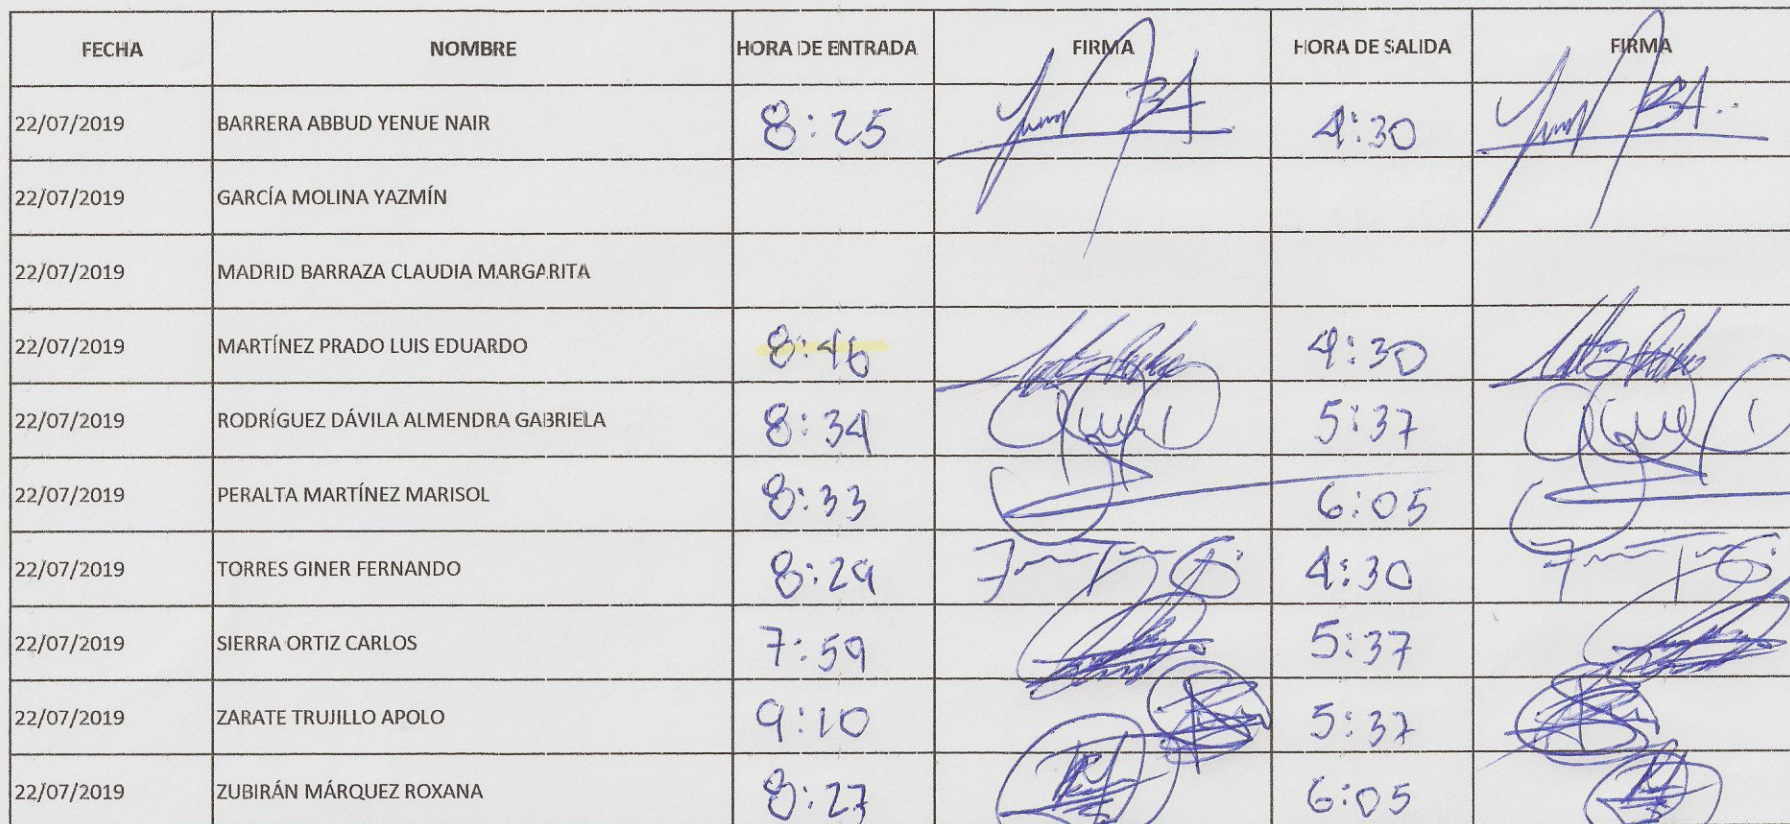 FECHA NOMBRE HORA DE ENTRADA FIRMA HORA DE SALIDA FIRMA
22/07/2019 BARRERA ABBUD YENUE NAIR 8:25 4:30
22/07/2019 GARCÍA MOLINA YAZMÍN
22/07/2019 MADRID BARRAZA CLAUDIA MARGARITA
22/07/2019 MARTÍNEZ PRADO LUIS EDUARDO 8:46 4:30
22/07/2019 RODRÍGUEZ DÁVILA ALMENDRA GABRIELA 8:34 5:37
22/07/2019 PERALTA MARTÍNEZ MARISOL 8:33 6:05
22/07/2019 TORRES GINER FERNANDO 8:29 4:30
22/07/2019 SIERRA ORTIZ CARLOS 7:59 5:37
22/07/2019 ZARATE TRUJILLO APOLO 9:10 5:37
22/07/2019 ZUBIRÁN MÁRQUEZ ROXANA 8:27 6:05